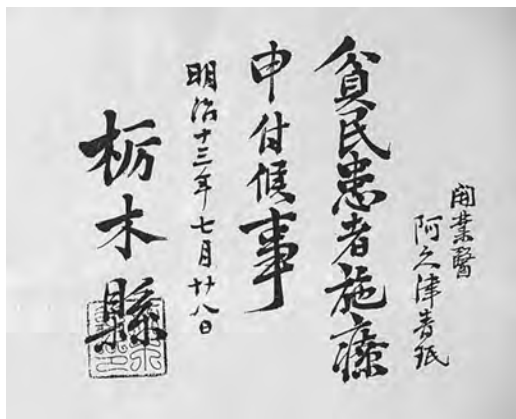 開業醫
阿久津青
貧民患者施療
申付候事
明治十三年七月廿八日
栃木縣